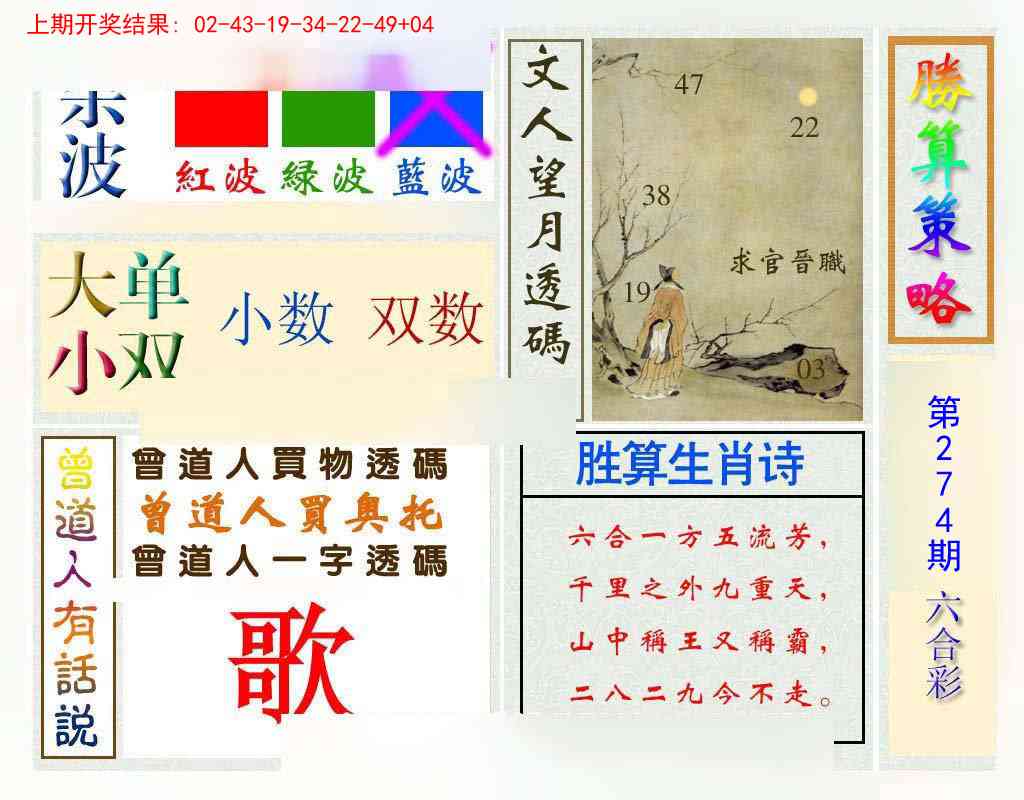 上期开奖结果: 02-43-19-34-22-49+04
波
紅波 緑波 藍波
大单
小双
小数 双数
文人望月透碼
47
22
38
求官晉職
19
03
勝算策略
第274期
六合彩
曾道人有話説
曾道人買物透碼
曾道人買奥托
曾道人一字透碼
歌
胜算生肖诗
六合一方五流芳,
千里之外九重天,
山中稱王又稱霸,
二八二九今不走。